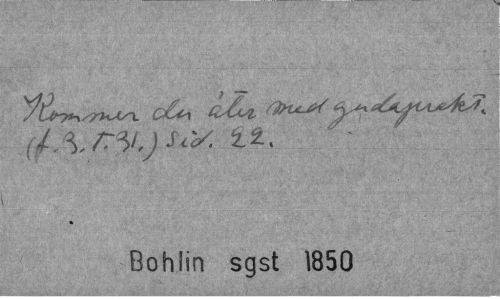 Kommer du åter med gudaprakt.
(f. 3. t. 31.) Sid. 22.
Bohlin sgst 1850